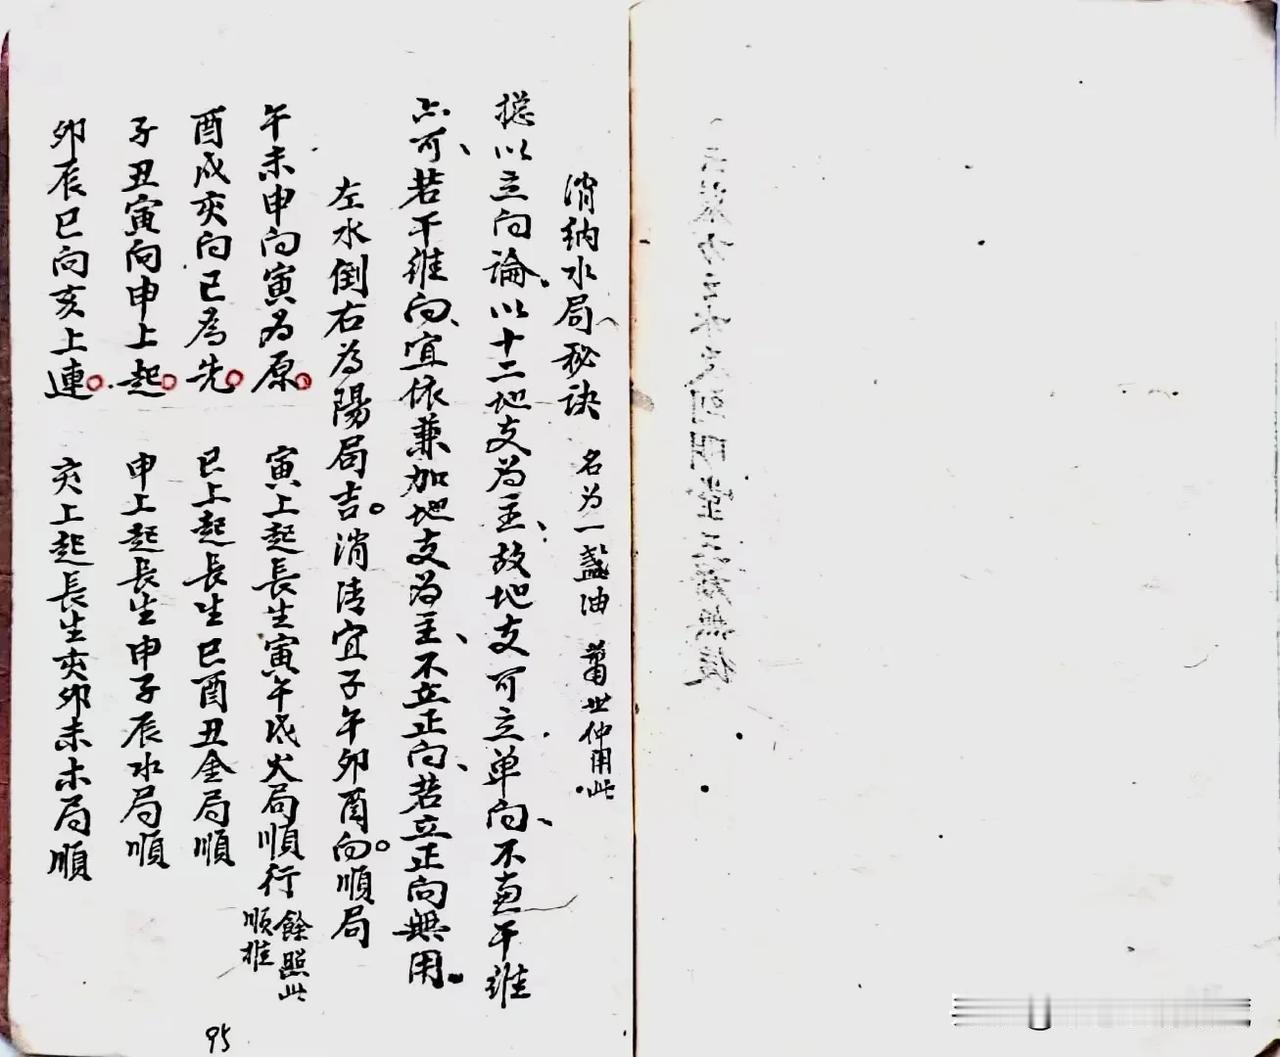 消納水局秘訣 名為一盞油 莆世仲用此
摠以立向論、以十二地支為主、故地支可立单向、不兼干維
亦可、若干維向、宜依兼加地支為主、不立正向、若立正向無用。
左水倒右為陽局吉。消法宜子午卯酉向。順局
午未申向寅為原。 寅上起長生寅午戌火局順行 餘照此順推
酉戌亥向巳為先。 巳上起長生巳酉丑金局順
子丑寅向申上起。 申上起長生申子辰水局順
卯辰巳向亥上連。 亥上起長生亥卯未木局順
95